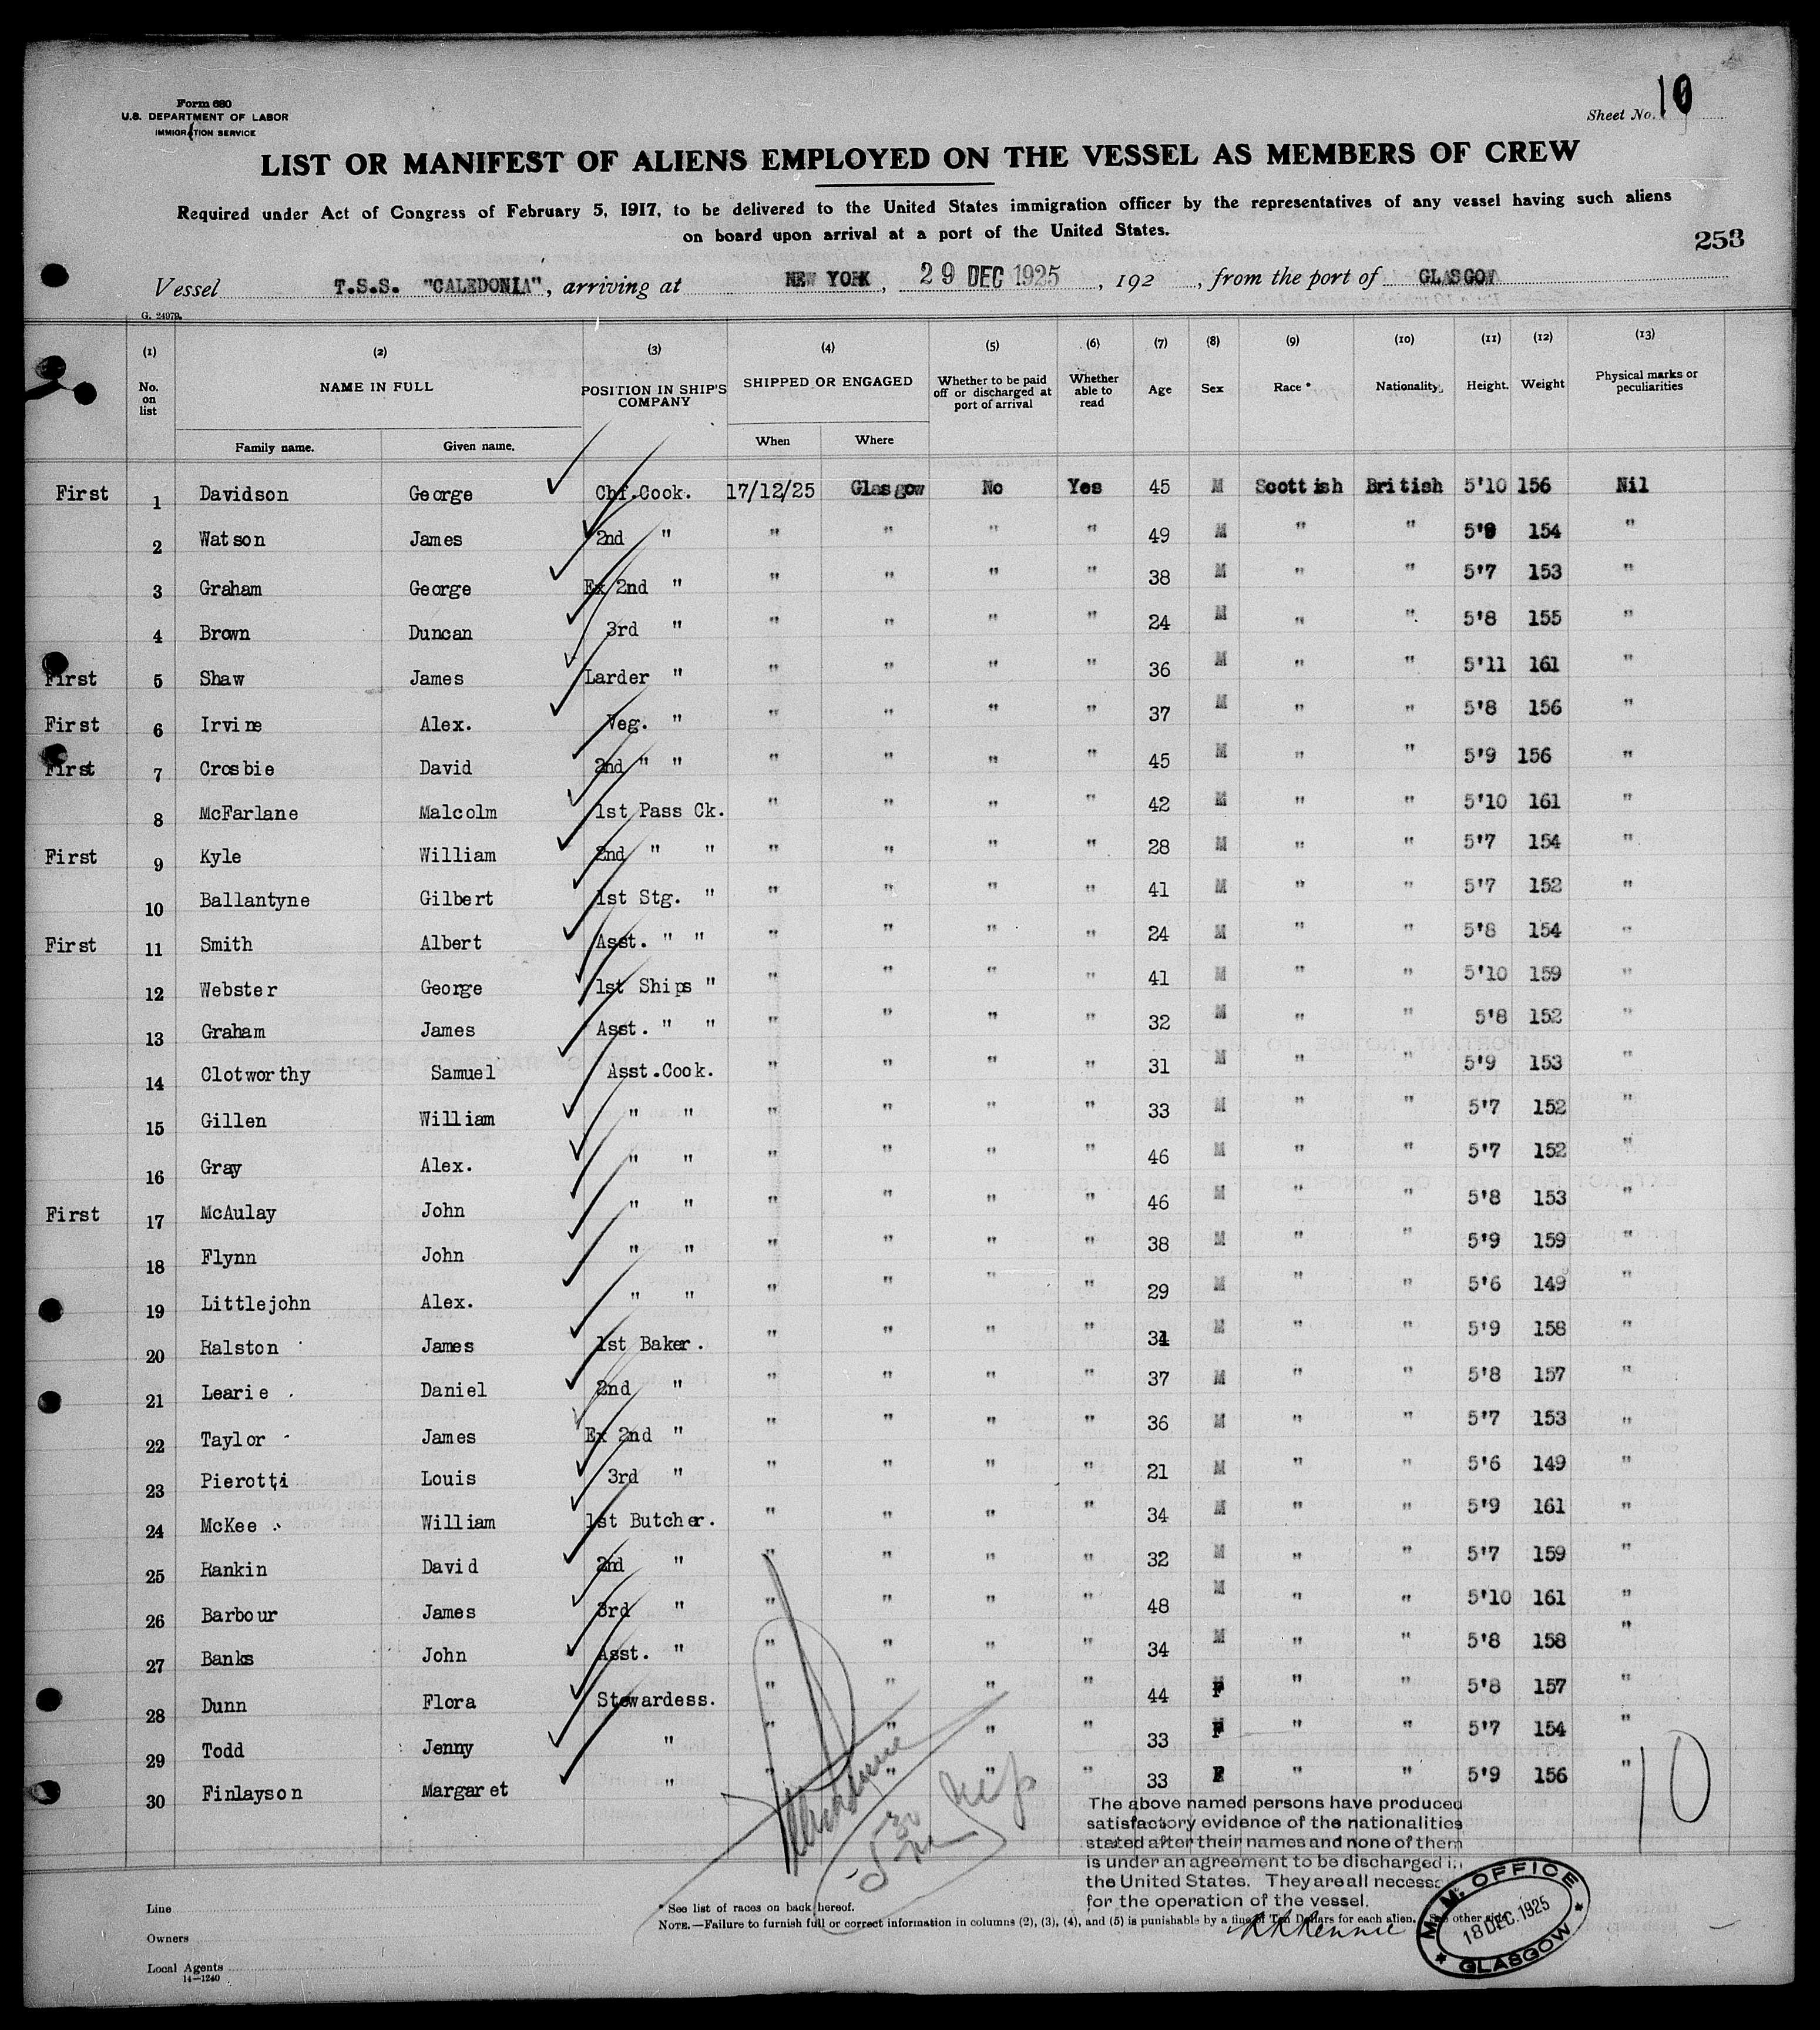 Form 680
U.S. DEPARTMENT OF LABOR
IMMIGRATION SERVICE
Sheet No. 10
LIST OR MANIFEST OF ALIENS EMPLOYED ON THE VESSEL AS MEMBERS OF CREW
Required under Act of Congress of February 5, 1917, to be delivered to the United States immigration officer by the representatives of any vessel having such aliens
on board upon arrival at a port of the United States.
253
Vessel T.S.S. "CALEDONIA", arriving at NEW YORK, 29 DEC 1925, 192 , from the port of GLASGOW
G. 24979.
(1) (2) (3) (4) (5) (6) (7) (8) (9) (10) (11) (12) (13)
No. on list NAME IN FULL POSITION IN SHIP'S COMPANY SHIPPED OR ENGAGED Whether to be paid off or discharged at port of arrival Whether able to read Age Sex Race * Nationality. Height. Weight Physical marks or peculiarities
Family name. Given name. When Where
First 1 Davidson George Chf.Cook. 17/12/25 Glasgow No Yes 45 M Scottish British 5'10 156 Nil
2 Watson James 2nd " " " " " 49 M " " 154 "
3 Graham George Ex 2nd " " " " " 38 M " " 5'7 153 "
4 Brown Duncan 3rd " " " " " 24 M " " 5'8 155 "
First 5 Shaw James Larder " " " " " 36 M " " 5'11 161 "
First 6 Irvine Alex. Veg. " " " " " 37 M " " 5'8 156 "
First 7 Crosbie David 2nd " " " " " " 45 M " " 5'9 156 "
8 McFarlane Malcolm 1st Pass Ck. " " " " 42 M " " 5'10 161 "
First 9 Kyle William 2nd " " " " " " 28 M " " 5'7 154 "
10 Ballantyne Gilbert 1st Stg. " " " " " 41 M " " 5'7 152 "
First 11 Smith Albert Asst. " " " " " " 24 M " " 5'8 154 "
12 Webster George 1st Ships " " " " " 41 M " " 5'10 159 "
13 Graham James Asst. " " " " " " 32 M " " 5'8 152 "
14 Clotworthy Samuel Asst.Cook. " " " " 31 M " " 5'9 153 "
15 Gillen William " " " " " " 33 M " " 5'7 152 "
16 Gray Alex. " " " " " " 46 M " " 5'7 152 "
First 17 McAulay John " " " " " " 46 M " " 5'8 153 "
18 Flynn John " " " " " " 38 M " " 5'9 159 "
19 Littlejohn Alex. " " " " " " 29 M " " 5'6 149 "
20 Ralston James 1st Baker. " " " " 34 M " " 5'9 158 "
21 Learie Daniel 2nd " " " " " 37 M " " 5'8 157 "
22 Taylor James Ex 2nd " " " " " 36 M " " 5'7 153 "
23 Pierotti Louis 3rd " " " " " 21 M " " 5'6 149 "
24 McKee William 1st Butcher. " " " " 34 M " " 5'9 161 "
25 Rankin David 2nd " " " " " 32 M " " 5'7 159 "
26 Barbour James 3rd " " " " " 48 M " " 5'10 161 "
27 Banks John Asst. " " " " " 34 M " " 5'8 158 "
28 Dunn Flora Stewardess. " " " " 44 F " " 5'8 157 "
29 Todd Jenny " " " " " 33 F " " 5'7 154 "
30 Finlayson Margaret " " " " " 33 F " " 5'9 156 "
10
The above named persons have produced
satisfactory evidence of the nationalities
stated after their names and none of them
is under an agreement to be discharged in
the United States. They are all
for the operation of the vessel.
Line
Owners
Local Agents
14—1240
* See list of races on back hereof.
NOTE.—Failure to furnish full or correct information in columns (2), (3), (4), and (5) is punishable by a fine of Ten Dollars for each alien. See other side.
M. M. OFFICE
18 DEC. 1925
GLASGOW